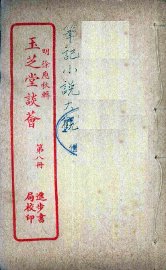 筆記小説大觀
明 徐應秋輯
玉芝堂談薈
第八冊
進步書
局校印